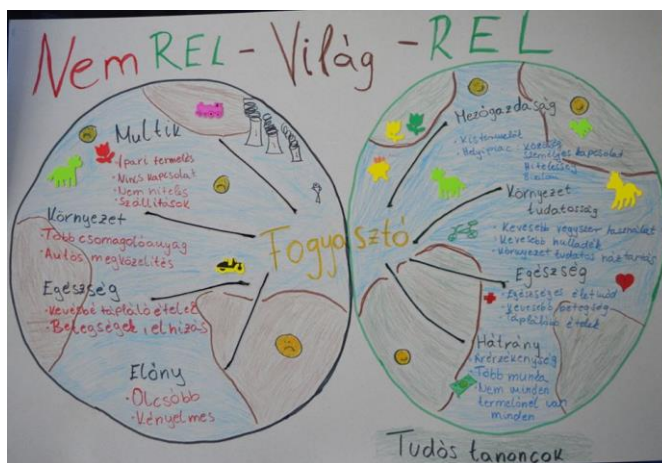 Nem REL - Világ - REL
Multik
• Ipari termelés
• Nincs kapcsolat
• Nem hiteles
• Szállítások
Környezet
• Több csomagolóanyag
• Autós megközelítés
Egészség
• Kevésbé tápláló ételek
• Betegségek, elhízás
Előny
• Olcsóbb
• Kényelmes
Fogyasztó
Mezőgazdaság
• Kistermelői
• Helyi piac
• Közösség
személyes kapcsolat
Hitelesség
Környezet
tudatosság
• Kevesebb vegyszer használat
• Kevesebb hulladék
• Környezet tudatos háztartás
Egészség
• Egészséges életmód
• Kevesebb betegség
• Tápláló ételek
Hátrány
• Árérzékenység
• Több munka
• Nem minden
termelőnél van
minden
Tudós tanoncok